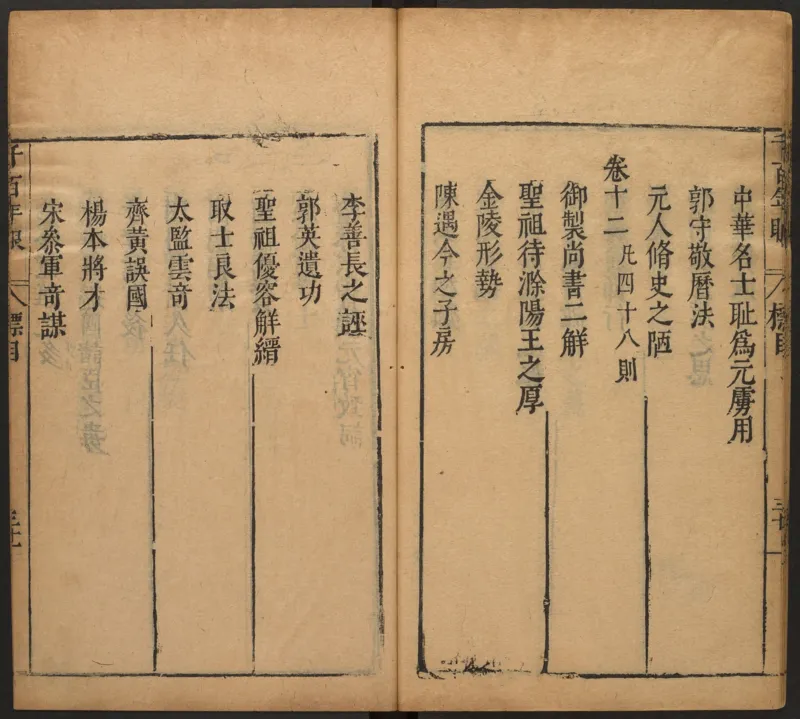 中華名士耻爲元虜用
郭守敬曆法
元人脩史之陋
卷十二 凡四十八則
御製尚書二解
聖祖待滁陽王之厚
金陵形勢
陳遇今之子房
李善長之誣
郭英遺功
聖祖優容解縉
取士良法
太監雲奇
齊黃誤國
楊本將才
宋參軍奇謀